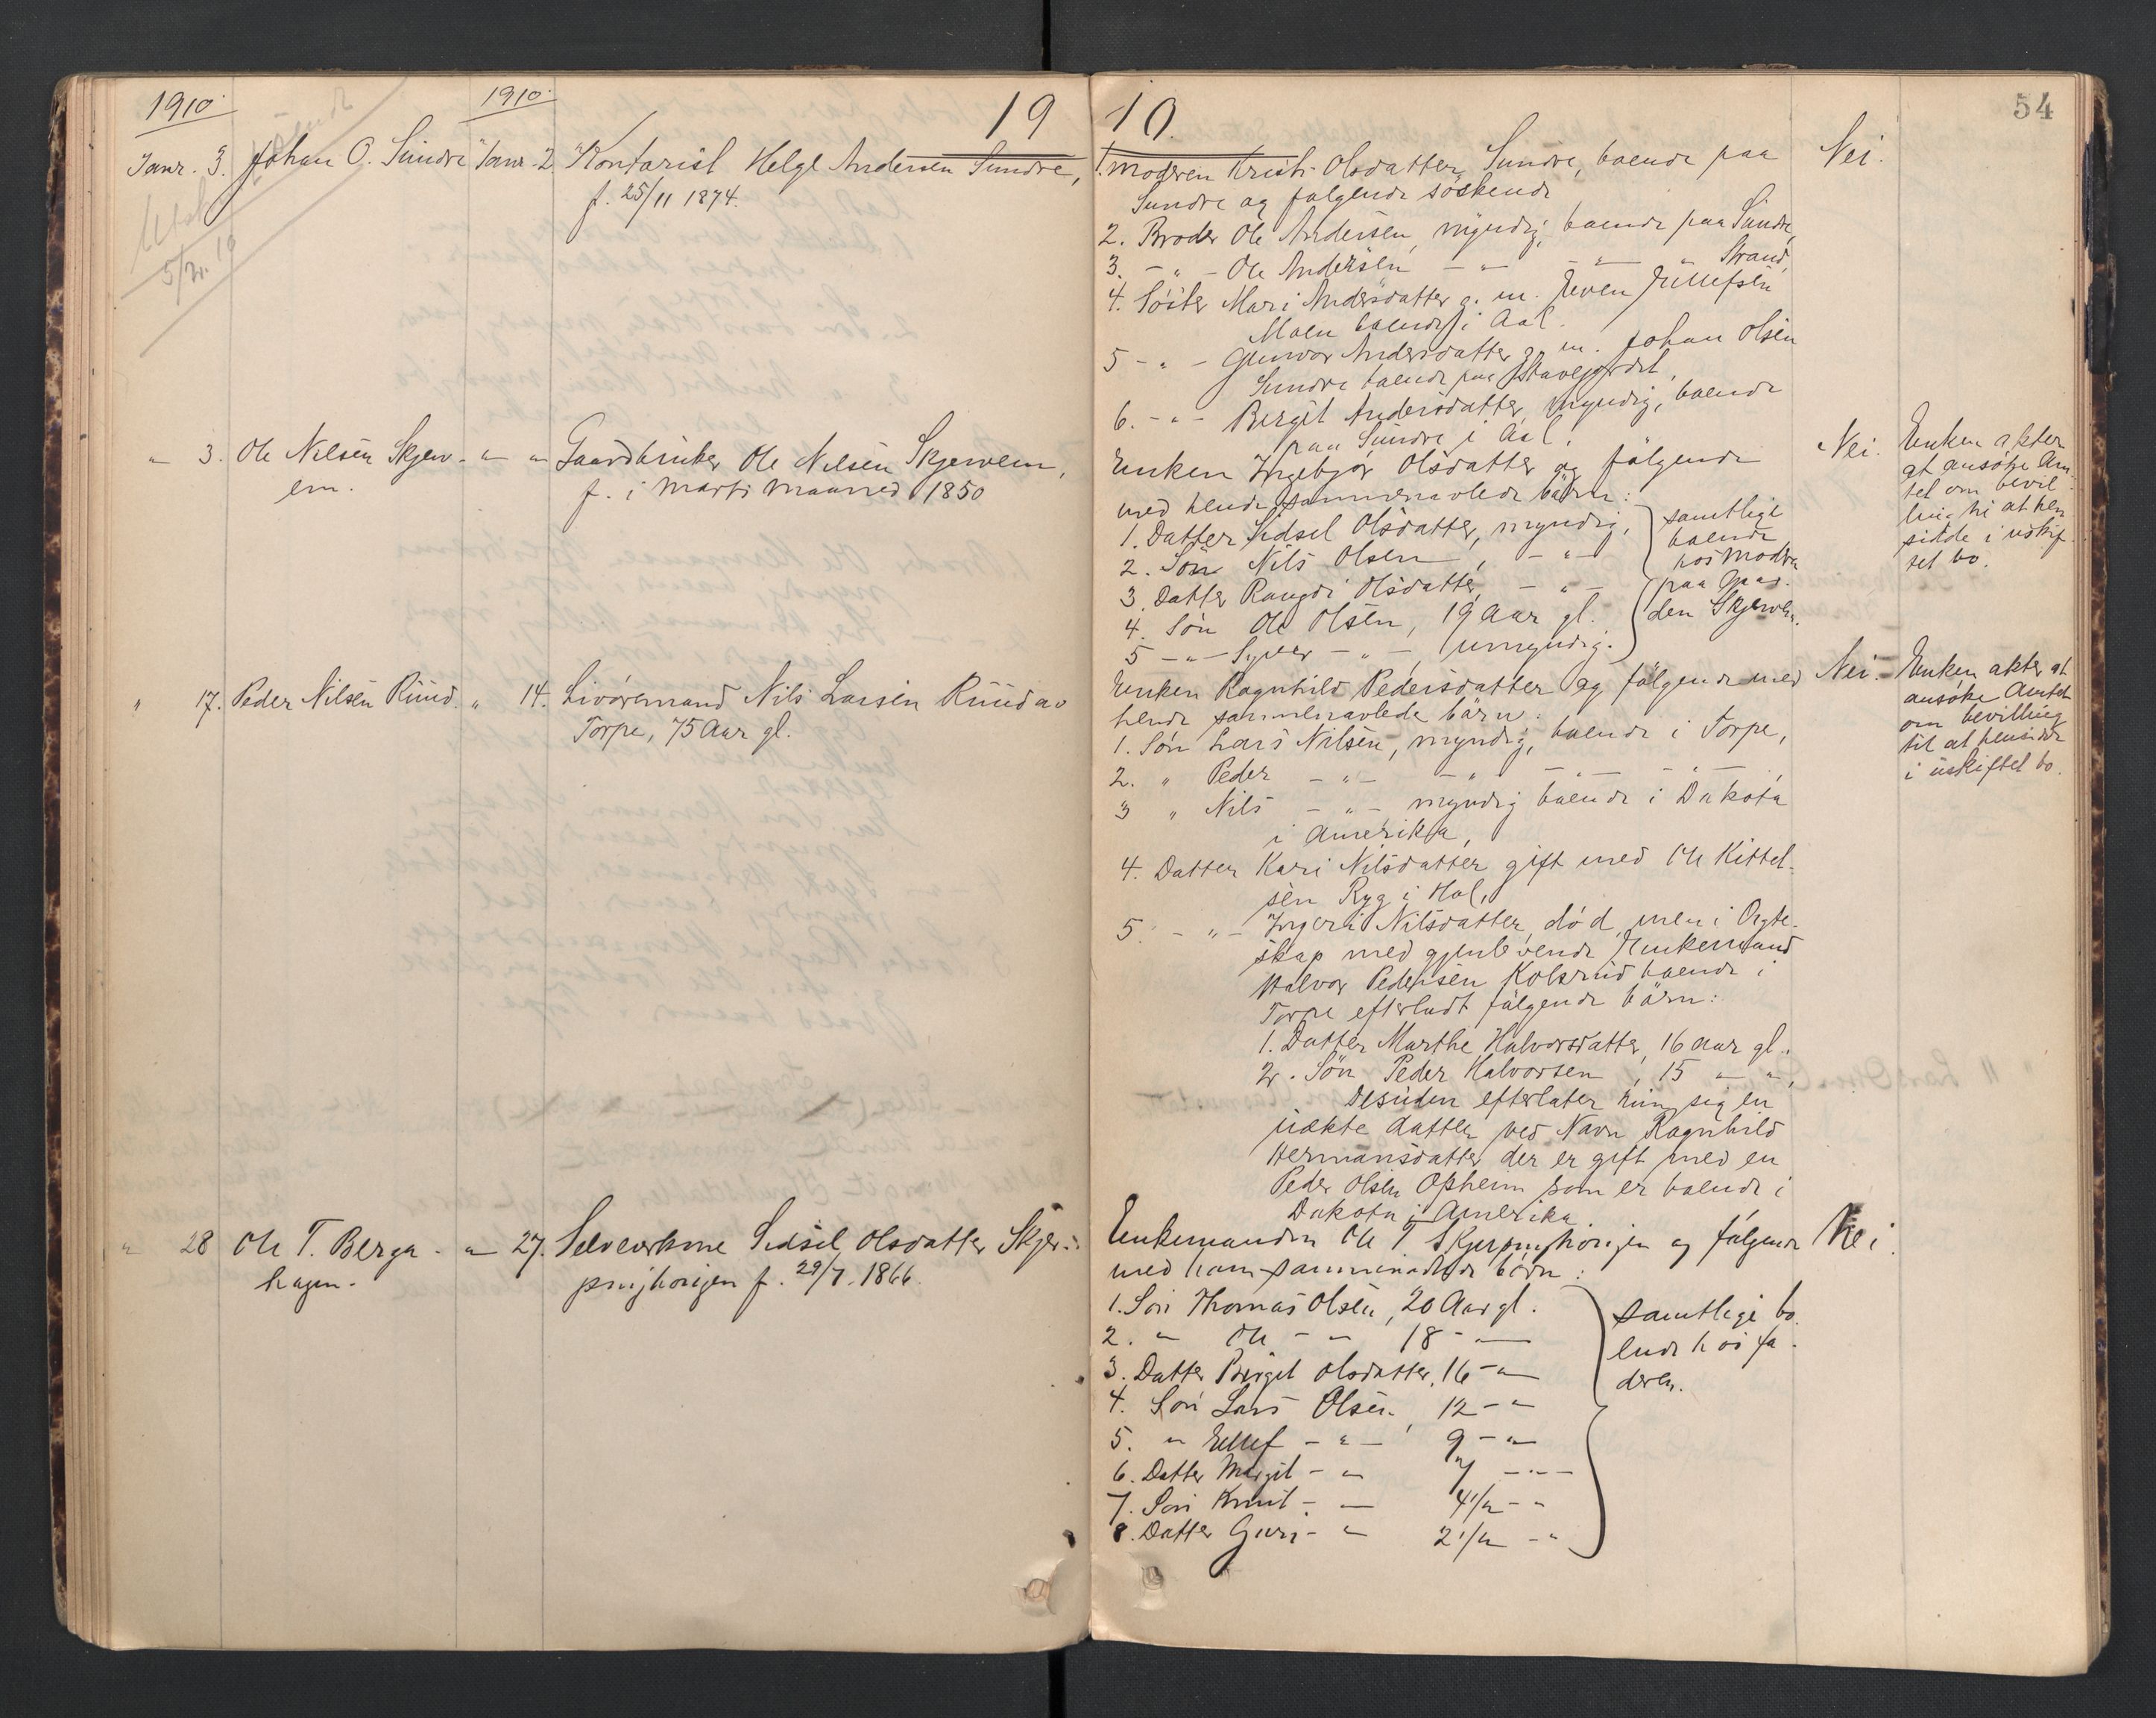 1910
1910
19
10.
54
Janr. 3. Johan O. Sundre Janr. 2. Kontorist Helge Andersen Sundre,
f. 25/11 1874.
5/2. 10
1. Moderen Kristi Olsdatter Sundre, boende paa
Sundre og følgende søskende
2. Broder Ole Andersen, myndig, boende paa Sundre,
3. - " - Ole Andersen - " - - " - Strand,
4. Søster Mari Andersdatter g. m. Even Tullefsen
Moen boende i Aal.
5 - " - Gunvor Andersdatter g. m. Johan Olsen
Sundre boende paa
6. - " - Birgit Andersdatter, myndig, boende
paa Sundre i Aal.
Nei.
" 3. Ole Nilsen Skjerv-
em.
" " Gaardbruker Ole Nilsen Skjervem,
f. i Marts Maaned 1850
Enken Ingebjør Olsdatter og følgende
med hende sammenavlede børn:
1. Datter Sidsel Olsdatter, myndig,
2. Søn Nils Olsen, - " -
3. Datter Rangdi Olsdatter, - " -
4. Søn Ole Olsen, 19 Aar gl.
5 - " - Syver - " -, umyndig.
samtlige
boende
hos Modren
paa Gaar-
den Skjervem.
Nei.
Enken akter
at ansøke Am-
tet om bevil-
ling til at hen-
sidde i uskif-
tet bo.
" 17. Peder Nilsen Ruud. " 14. Livøremand Nils Larsen Ruud av
Torpe, 75 Aar gl.
Enken Ragnhild Pedersdatter og følgende med
hende sammenavlede børn:
1. Søn Lars Nilsen, myndig, boende i Torpe,
2. " Peder - " - - " - - " - - " -,
3 " Nils - " - myndig boende i Dakota
i Amerika,
4. Datter Kari Nilsdatter gift med Ole Kittel-
sen Ryg i Hol,
5. - " - Ingeri Nilsdatter, død, men i Ægte-
skap med gjenlevende Enkemand
Halvor Pedersen Kolsrud boende i
Torpe efterladt følgende børn:
1. Datter Marthe Halvorsdatter, 16 aar gl.
2. Søn Peder Halvorsen, 15 " ",
Desuden efterlater hun sig en
uekte datter ved Navn Ragnhild
Hermansdatter der er gift med en
Peder Olsen Opheim som er boende i
Dakota i Amerika
Nei.
Enken akter at
ansøke Amtet
om bevilling
til at hensidde
i uskiftet bo.
" 28 Ole T. Berga-
hagen.
" 27. Selveierkone Sidsel Olsdatter Skjer-
pinghorigen f. 29/7. 1866.
Enkemanden Ole T Skjerpinghorigen og følgende
med ham sammenavlede børn:
1. Søn Thomas Olsen, 20 Aar gl.
2. " Ole - " 18 - "
3. Datter Birgit Olsdatter, 16 - "
4. Søn Lars Olsen, 12 - "
5. " Ellef - " - 9 - "
6. Datter Margit - " 7 - " -
7. Søn Knut - " 4 1/2 - "
8. Datter Guri - " 2 1/2 - "
samtlige bo-
ende hos fa-
deren.
Nei.